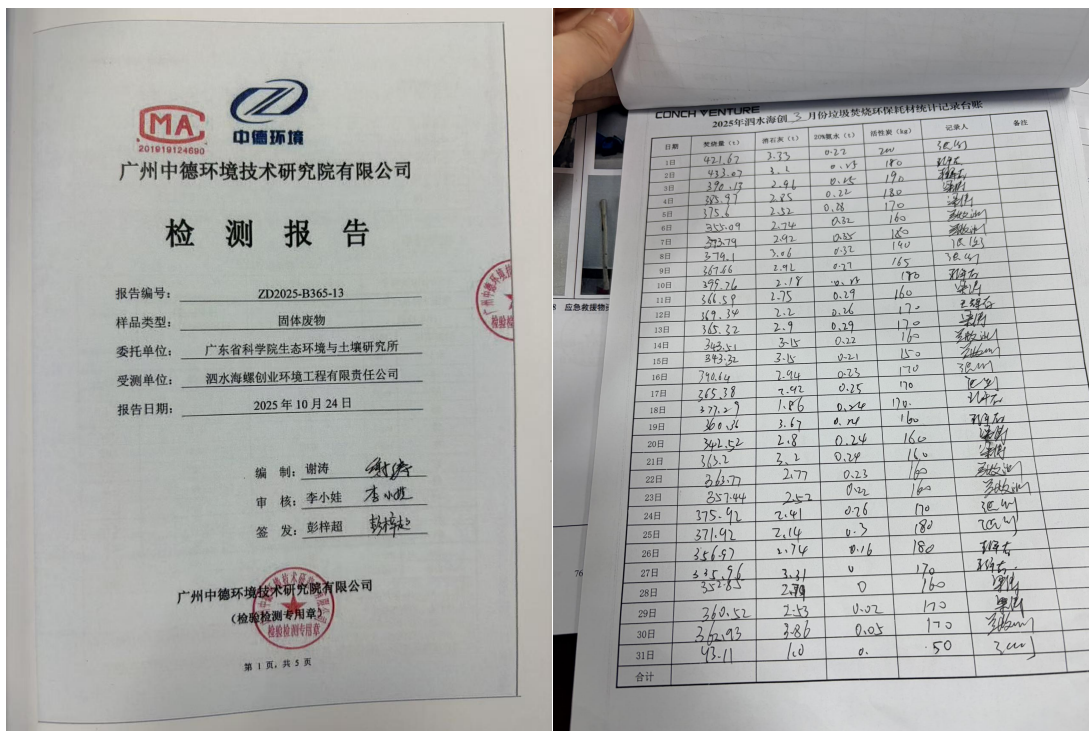 MA
201919124690
中德环境
广州中德环境技术研究院有限公司
检测报告
报告编号: ZD2025-B365-13
样品类型: 固体废物
委托单位: 广东省科学院生态环境与土壤研究所
受测单位: 泗水海螺创业环境工程有限责任公司
报告日期: 2025年10月24日
编 制: 谢涛
审 核: 李小娃 李小娃
签 发: 彭梓超 彭梓超
广州中德环境技术研究院有限公司
(检验检测专用章)
检验检测专用章
第 1 页, 共 5 页
应急救援物
76
CONCH VENTURE
2025年泗水海创 3 月份垃圾焚烧环保耗材统计记录台账
日期 焚烧量(t) 消石灰(t) 20%氨水(t) 活性炭(kg) 记录人 备注
1日 421.67 3.33 0.27 200
2日 433.07 3.2 180
3日 390.13 2.96 190
4日 385.97 2.85 0.22 180
5日 375.6 2.52 0.28 170
6日 355.09 2.74 0.32 160
7日 393.79 2.92 0.35 180
8日 379.1 3.06 0.32 140
9日 367.66 2.92 0.27 165
10日 399.26 2.18 180
11日 366.59 2.75 0.29 160
12日 369.34 2.2 0.26 170
13日 365.32 2.9 0.29 170
14日 343.51 3.15 0.22 160
15日 343.32 3.15 0.21 150
16日 390.64 2.94 0.23 170
17日 365.38 2.92 0.25 170
18日 377.29 1.86 0.24 170
19日 360.36 3.67 160
20日 342.52 2.8 0.24 160
21日 363.2 3.2 0.24 160
22日 363.77 2.77 0.23 160
23日 357.44 2.52 0.22 160
24日 375.92 2.41 0.26 170
25日 371.92 2.14 0.3 180
26日 356.97 2.74 0.16 180
27日 335.96 3.31 0 170
28日 353.85 0 160
29日 360.52 2.53 0.02 170
30日 362.93 3.86 0.05 170
31日 93.11 1.0 0. 50
合计